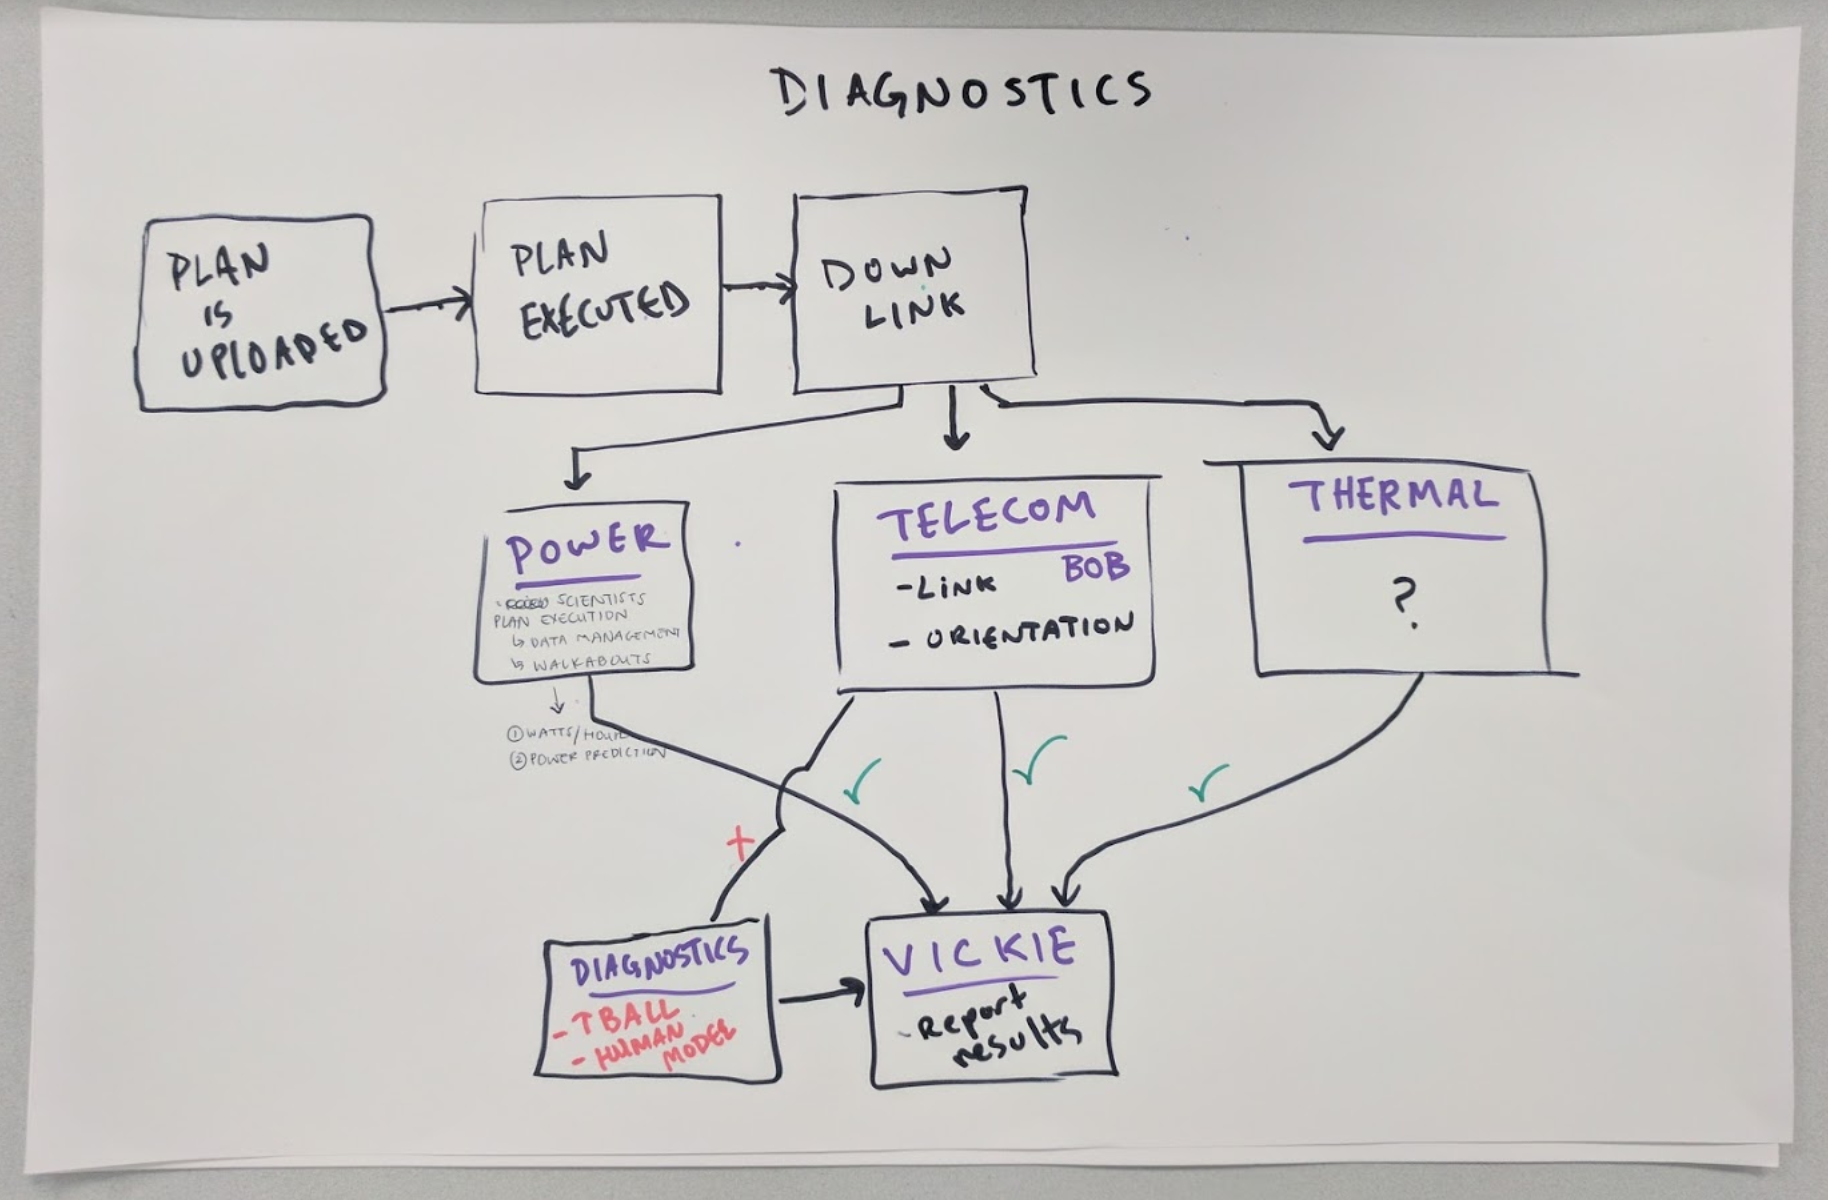 DIAGNOSTICS
PLAN
IS
UPLOADED
PLAN
EXECUTED
DOWN
LINK
POWER
- SCIENTISTS
PLAN EXECUTION
↳ DATA MANAGEMENT
↳ WALKABOUTS
① WATTS/HOUR
② POWER PREDICTION
TELECOM
BOB
- LINK
- ORIENTATION
THERMAL
?
DIAGNOSTICS
- TBALL
- HUMAN
MODEL
VICKIE
- Report
results